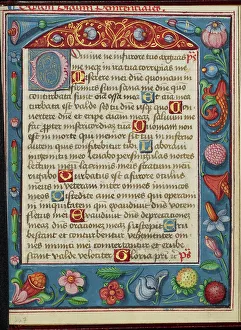 Domine ne in furore tuo arguas
me neqz in ira tua corripias me
Miserere mei dne quoniam
infirmus sum sana me dne quo
conturbata sunt ossa mea Et aīa
turbata est valde sed tu dne usqz quo
vertere dne et eripe aīam meam sal
fac ppter misericordiā tuā
quoniam non est in morte qui memor sit tui in
inferno autem quis confitebitur tibi Laboravi
in gemitu meo lavabo per singulas noctes
lectum meū lacrimis meis stratum meū
rigabo Turbatus est a furore oculus
meus inveteravi inter omnes inimicos
meos Discedite a me omnes qui operami
ni iniquitatem qm exaudivit dns vocem
fletus mei Exaudivit dns deprecationē
meam dns orationē meā suscepit Eru
bescant et conturbentur vehementer om
nes inimici mei convertantur et erube
scant valde velociter Gloria pri